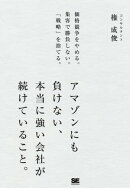 価格競争をやめる。
集客で勝負しない。
「戦略」を捨てる。
コンサルタント
権 成俊
アマゾンにも
負けない、
本当に強い会社が
続けていること。
SE
SHOEISHA